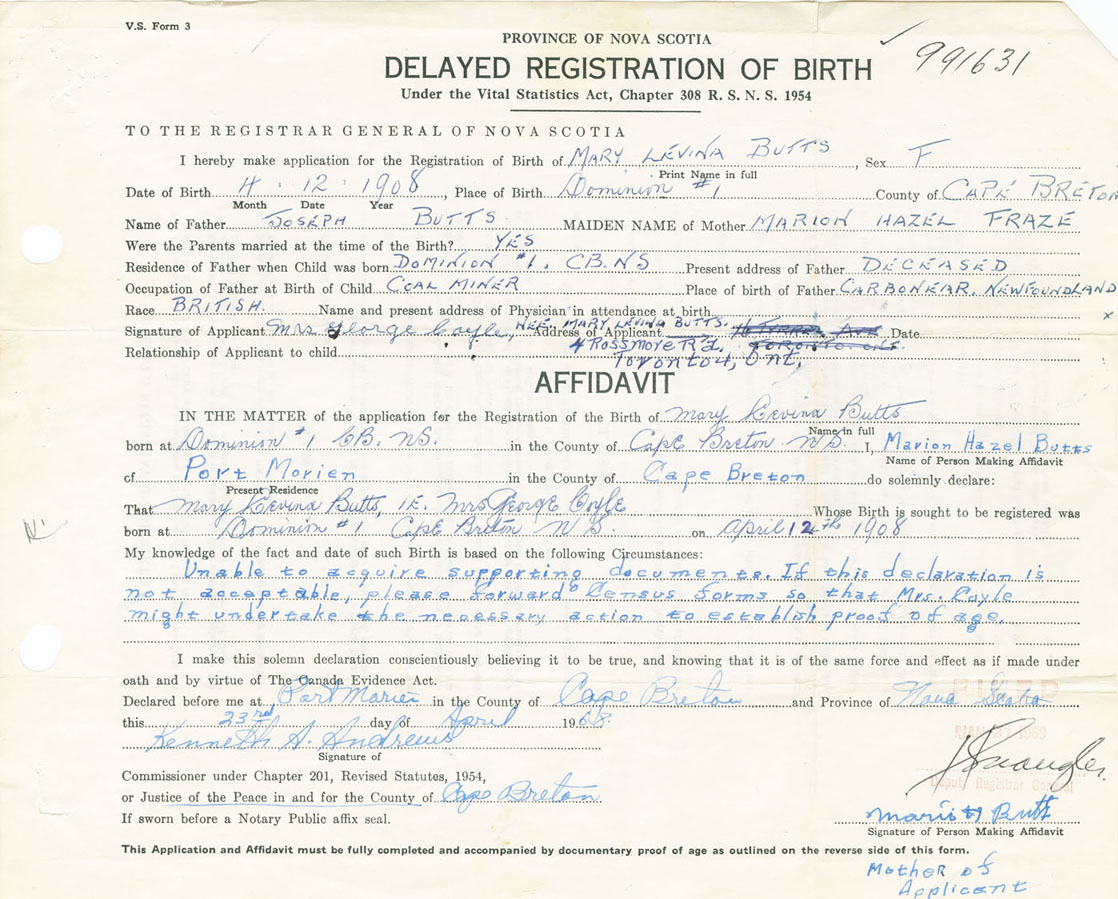 V.S. Form 3
PROVINCE OF NOVA SCOTIA
991631
DELAYED REGISTRATION OF BIRTH
Under the Vital Statistics Act, Chapter 308 R. S. N. S. 1954
TO THE REGISTRAR GENERAL OF NOVA SCOTIA
I hereby make application for the Registration of Birth of MARY LEVINA BUTTS, Sex F
Print Name in full
Date of Birth 4 . 12 . 1908, Place of Birth Dominion #1 County of CAPE BRETON
Month Date Year
Name of Father JOSEPH BUTTS. MAIDEN NAME of Mother MARION HAZEL FRAZE
Were the Parents married at the time of the Birth? YES
Residence of Father when Child was born DOMINION #1. CB. NS Present address of Father DECEASED
Occupation of Father at Birth of Child COAL MINER Place of birth of Father CARBONEAR, NEWFOUNDLAND
Race BRITISH. Name and present address of Physician in attendance at birth
x
Signature of Applicant Mrs George Coyle, NEE MARY LEVINA BUTTS. Address of Applicant AVE Date
4 Rossmore Rd. TORONTO. ONT.
Relationship of Applicant to child Toronto 4, Ont.
AFFIDAVIT
IN THE MATTER of the application for the Registration of the Birth of Mary Levina Butts
Name in full
born at Dominion #1 CB. NS. in the County of Cape Breton NS. I, Marion Hazel Butts
Name of Person Making Affidavit
of Port Morien in the County of Cape Breton do solemnly declare:
Present Residence
That Mary Levina Butts, IE. Mrs George Coyle Whose Birth is sought to be registered was
born at Dominion #1 Cape Breton NS. on April 12th 1908
My knowledge of the fact and date of such Birth is based on the following Circumstances:
Unable to acquire supporting documents. If this declaration is
not acceptable, please forward Census forms so that Mrs. Coyle
might undertake the necessary action to establish proof of age.
I make this solemn declaration conscientiously believing it to be true, and knowing that it is of the same force and effect as if made under
oath and by virtue of The Canada Evidence Act.
Declared before me at Port Morien in the County of Cape Breton and Province of Nova Scotia
FILED
this 23rd day of April 1968
1969
Kenneth A. Andrews
Signature of
Commissioner under Chapter 201, Revised Statutes, 1954,
Deputy Registrar General
or Justice of the Peace in and for the County of Cape Breton
Marion H Butts
If sworn before a Notary Public affix seal.
Signature of Person Making Affidavit
This Application and Affidavit must be fully completed and accompanied by documentary proof of age as outlined on the reverse side of this form.
Mother of
Applicant